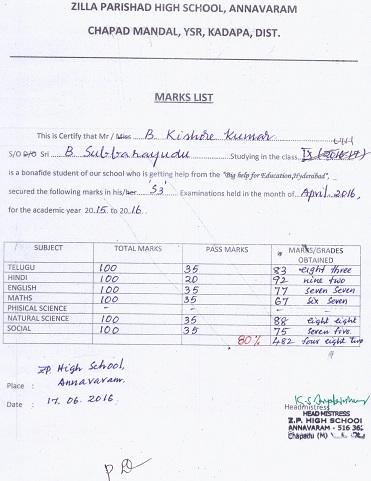 ZILLA PARISHAD HIGH SCHOOL, ANNAVARAM
CHAPAD MANDAL, YSR, KADAPA, DIST.
MARKS LIST
This is Certify that Mr / Miss B. Kishore Kumar
S/O D/O Sri B. Subbarayudu Studying in the class
is a bonafide student of our school who is getting help from the "Big help for Education,Hyderabad",
secured the following marks in his/her 'S3' Examinations held in the month of April 2016,
for the academic year 2015 to 2016.
SUBJECT TOTAL MARKS PASS MARKS MARKS/GRADES OBTAINED
TELUGU 100 35 83 eight three
HINDI 100 20 92 nine two
ENGLISH 100 35 77 seven seven
MATHS 100 35 67 six seven
PHISICAL SCIENCE - - - -
NATURAL SCIENCE 100 35 88 eight eight
SOCIAL 100 35 75 seven five
80% 482 four eight two
Place : Z.P. High School, Annavaram.
Date : 17.06.2016.
Headmistress
HEADMISTRESS
Z.P. HIGH SCHOOL
ANNAVARAM - 516 36
Chapadu (M)